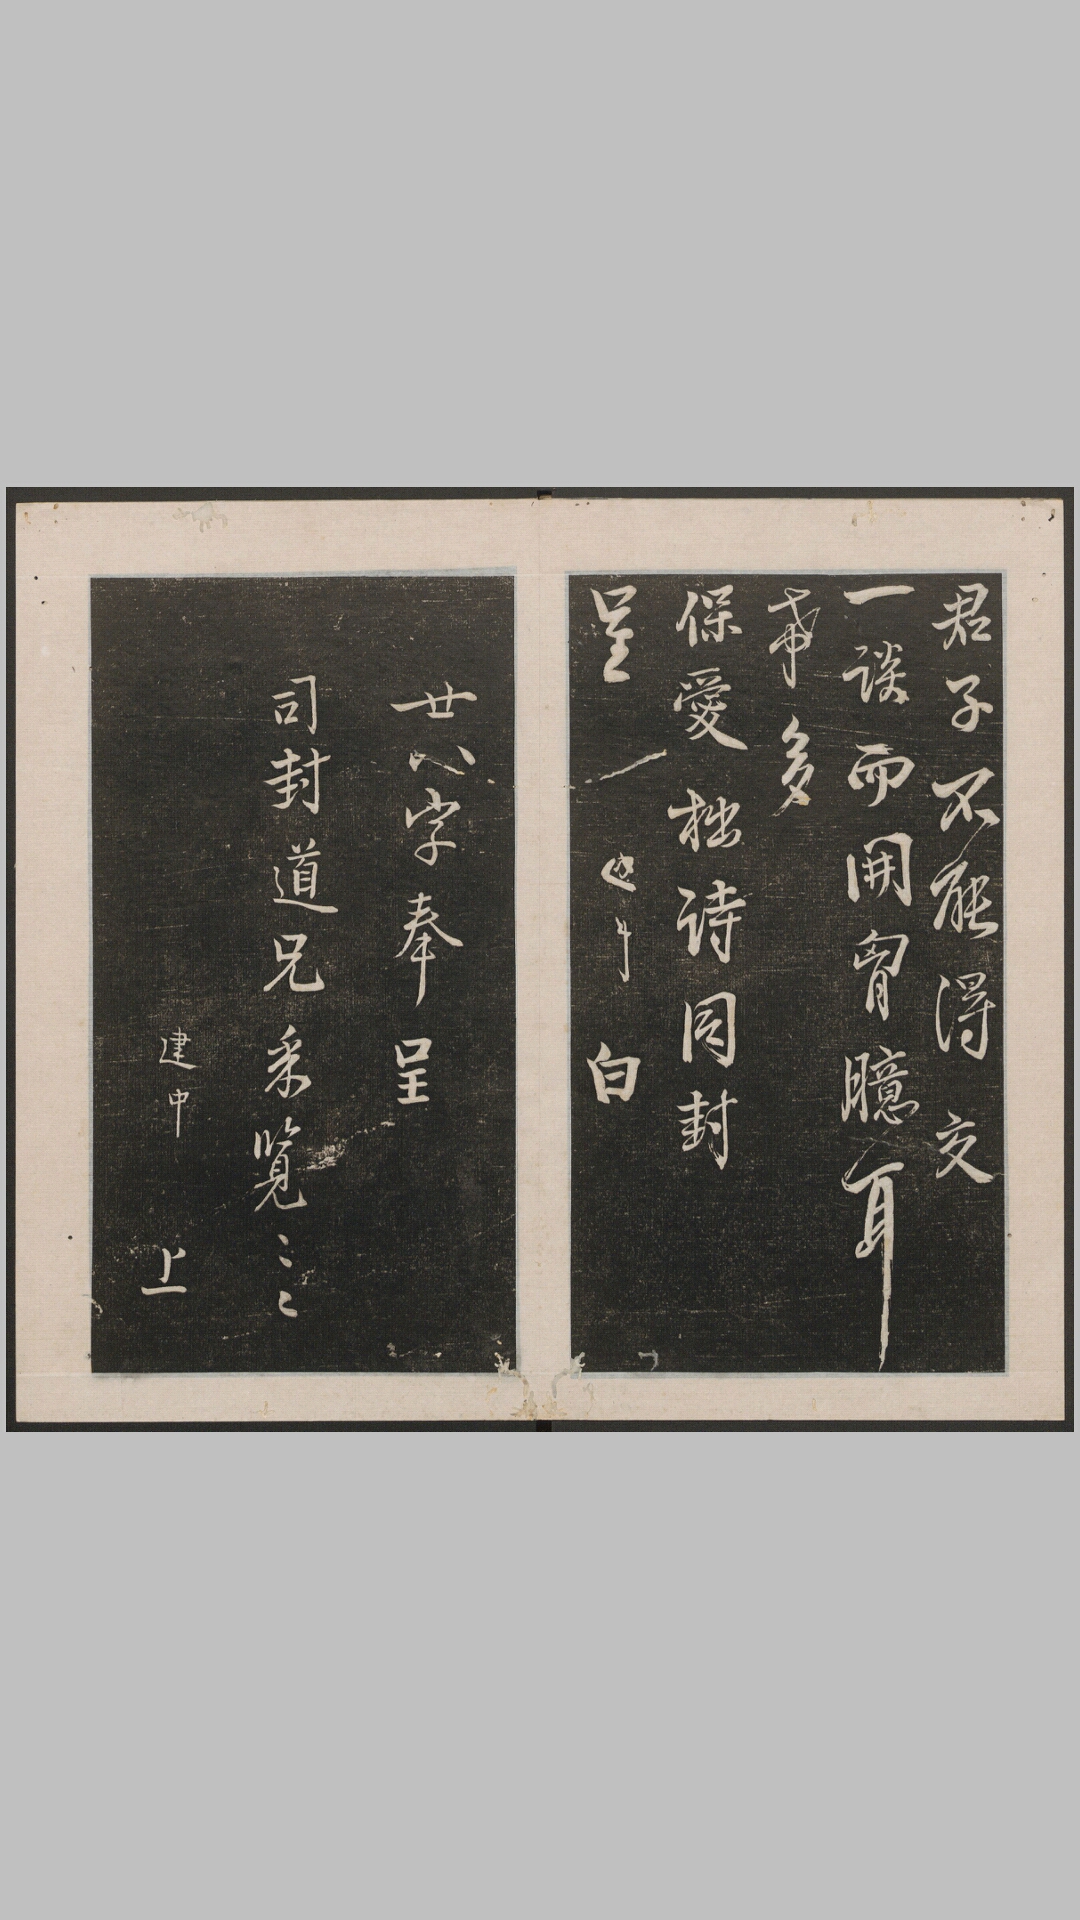 君子不能得交
一談而開胷臆耳
垂多
保愛拙詩同封
呈 建中白
廿八字奉呈
司封道兄采覽
建中上